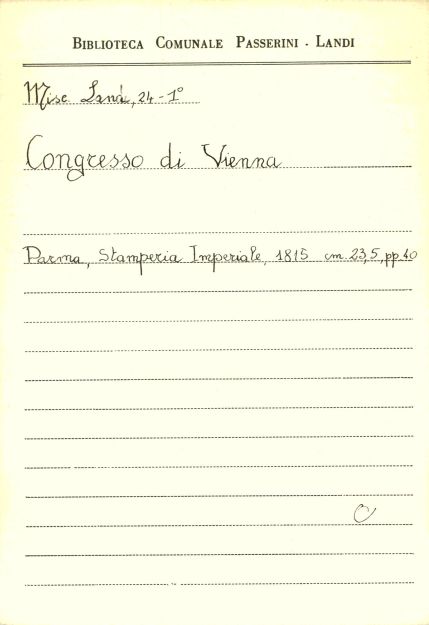 BIBLIOTECA COMUNALE PASSERINI - LANDI
Misc Landi, 24 - 1°
Congresso di Vienna
Parma, Stamperia Imperiale, 1815 cm. 23,5, pp. 40